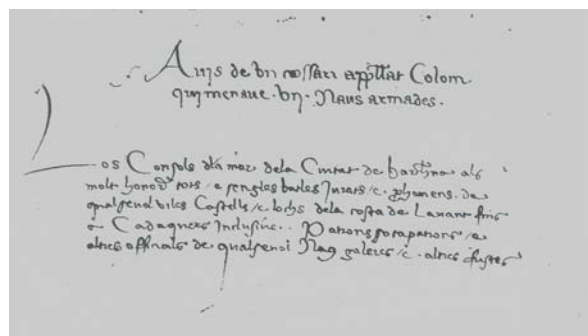 Auis de vn cossari appellat Colom.
qui menaue .vii. Naus armades.
Los Consols dla mar dela Ciutat de barchna als
molt honor tots / e sengles batles Jurats / e prohomens de
qualseuol viles Castells / e lochs dela costa de Leuant fins
a Cadaques Inclusiue. Patrons sotapatrons / e
altres officials de qualseuol Naus galeres / e altres fustes